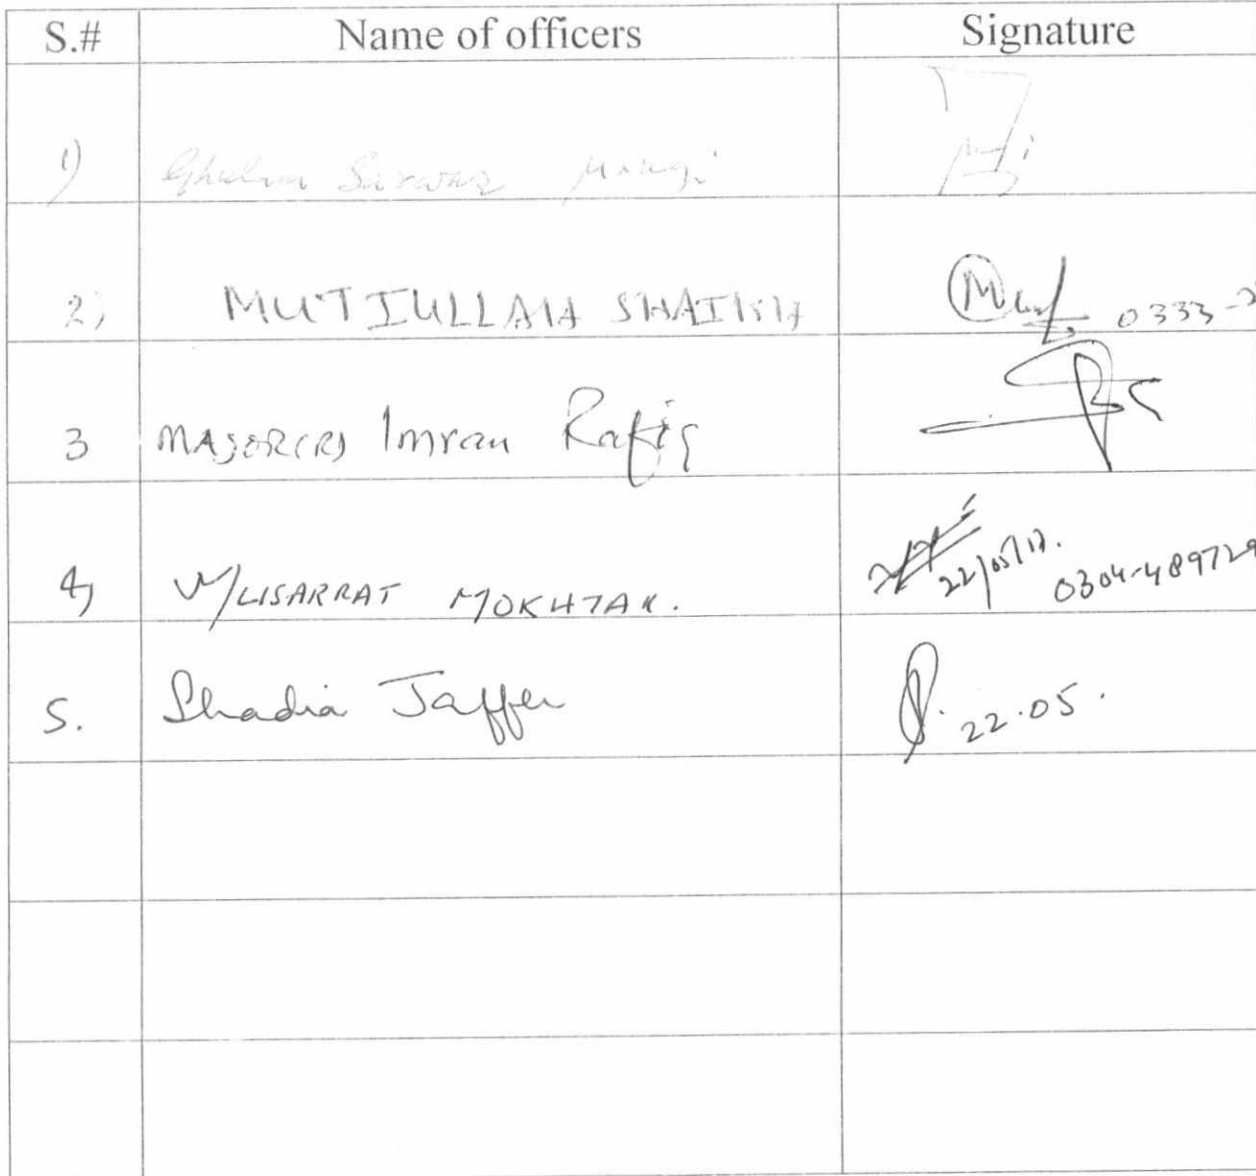 S.# Name of officers Signature
1) Ghulam Sarwar Mangi
2) MUTIULLAH SHAIKH 0333-
3 MAJOR(R) Imran Rafiq
4) MUSARRAT MOKHTAR. 22/05/17. 0304-489729
5. Shadia Jaffer 22.05.